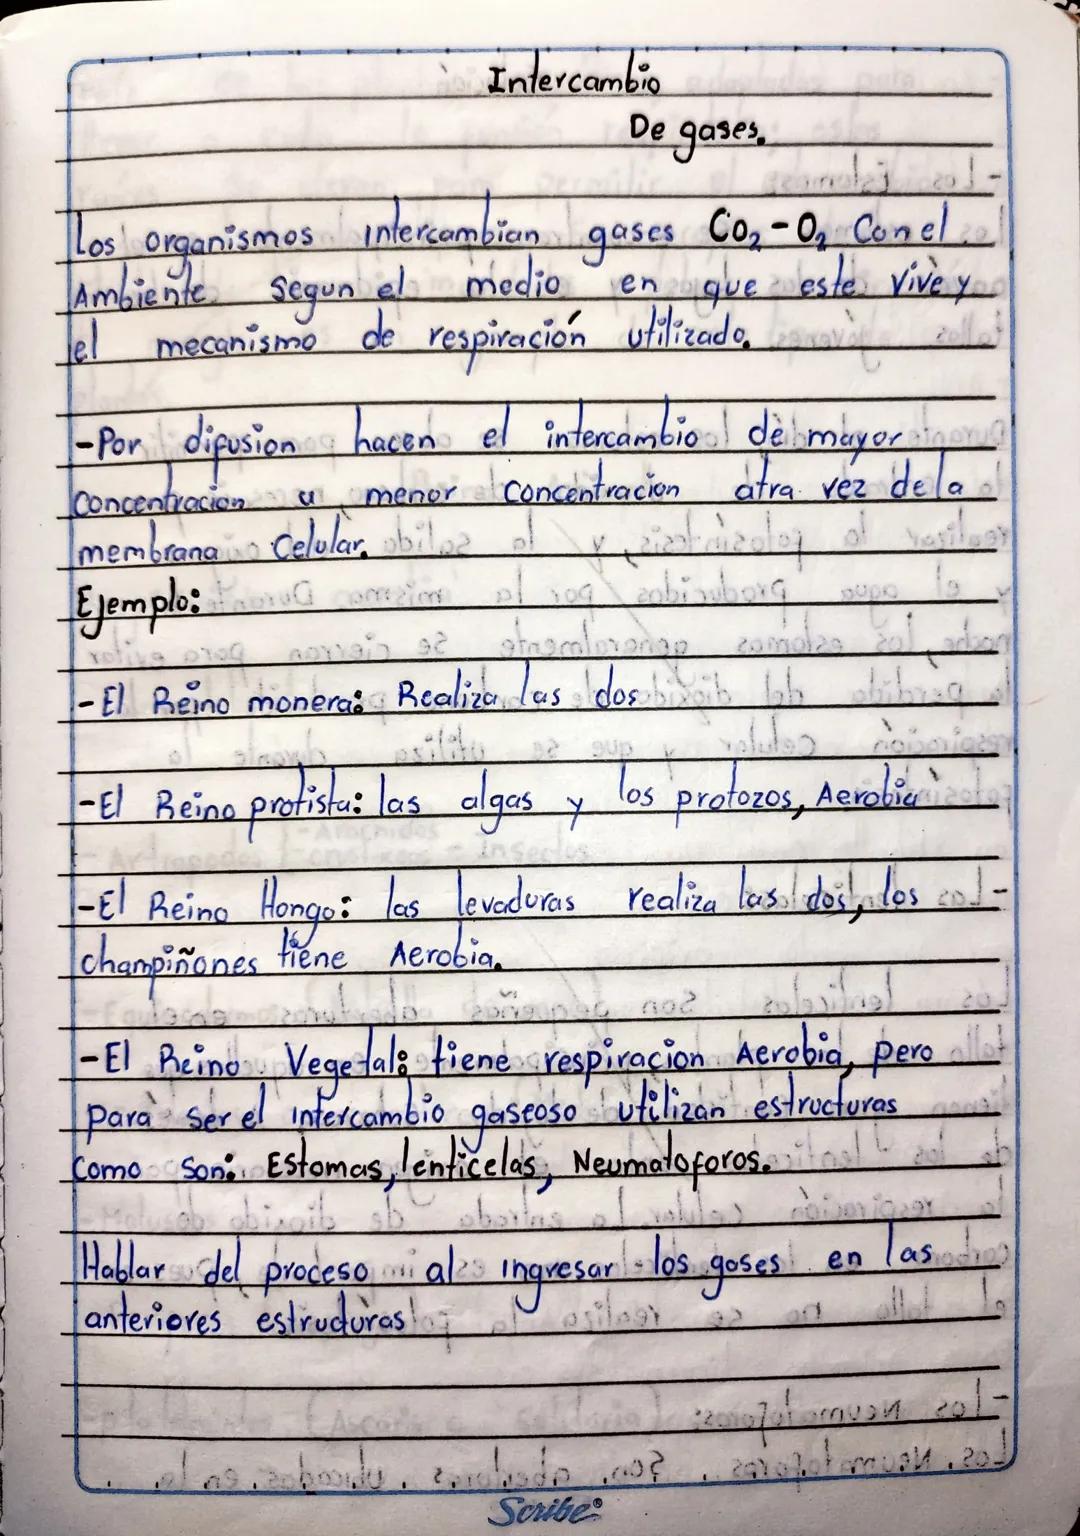 Intercambio
De gases.
Los organismos intercambian gases CO₂-O₂ Con el
Ambiente segun el medio en que este vive y
el mecanismo de respiración utilizado.
-Por difusion hacen el intercambio de mayor
concentracion a menor concentracion atra vez de la
membrana Celular.
Ejemplo:
-El Reino monera: Realiza las dos
-El Reino protista: las algas y los protozos, Aerobia
-El Reino Hongo: las levaduras realiza las dos, los
champiñones tiene Aerobia.
-El Reino Vegetal: tiene respiracion Aerobia, pero
para ser el intercambio gaseoso utilizan estructuras
como son: Estomas, lenticelas, Neumatoforos.
Hablar del proceso al ingresar los gases en las
anteriores estructuras
Scribe®